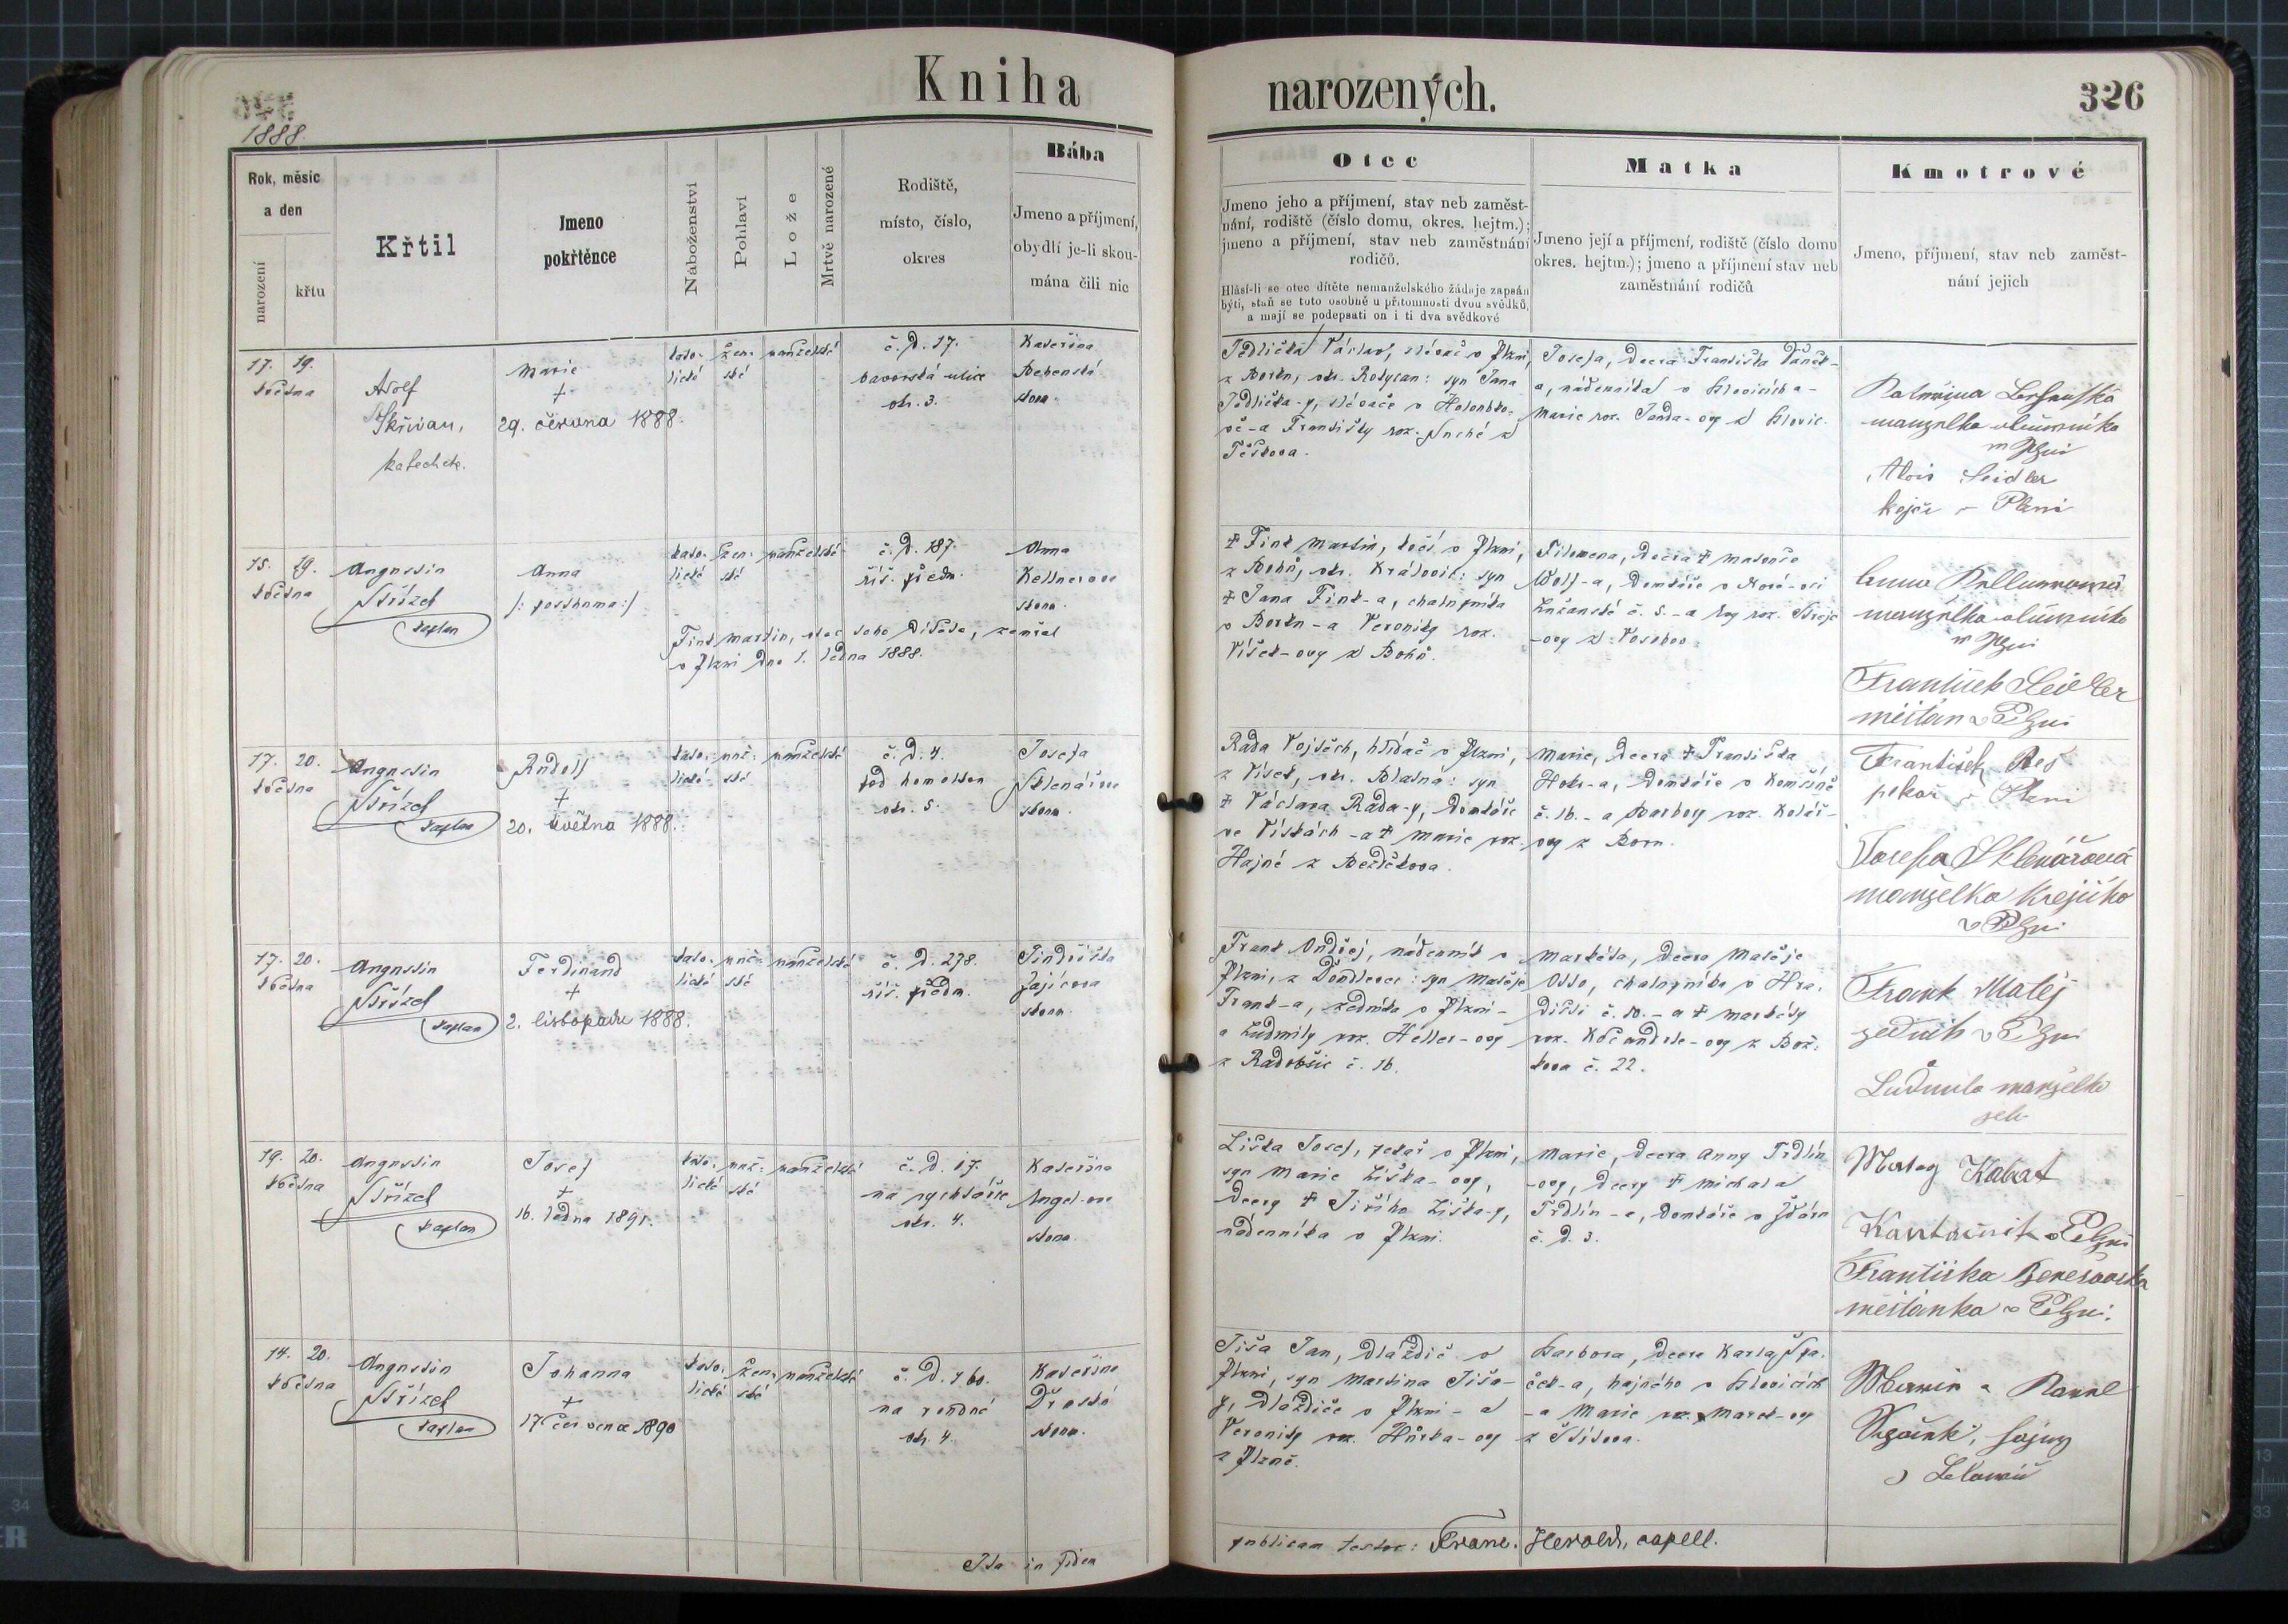 Kniha
narozených.
326
1888.
Rok, měsíc
a den
narození
křtu
Křtil
Jmeno
pokřtěnce
Náboženství
Pohlaví
Lože
Mrtvě narozené
Rodiště,
místo, číslo,
okres
Bába
Jmeno a příjmení,
obydlí je-li skou-
mána čili nic
Otec
Jmeno jeho a příjmení, stav neb zaměst-
nání, rodiště (číslo domu, okres. hejtm.);
jmeno a příjmení, stav neb zaměstnání
rodičů.
Hlásí-li se otec dítěte nemanželského žádaje zapsán
býti, staň se toto osobně u přítomnosti dvou svědků,
a mají se podepsati on i ti dva svědkové
Matka
Jmeno její a příjmení, rodiště (číslo domu
okres. hejtm.); jmeno a příjmení stav neb
zaměstnání rodičů
Kmotrové
Jmeno, příjmení, stav neb zaměst-
nání jejich
17. 19.
května
Adolf
Skřivan,
katecheta.
Marie
+
29. června 1888.
kato-
lické
žen-
ské
manželské
č. d. 17.
bavorská ulice
okr. 3.
Kateřina
Bebenská
zkou.
Jedlička Václav, slévač v Plzni,
z Borku, okr. Rokycan: syn Jana
Jedlička-y, slévače v Holoubko-
vě - a Františky roz. Suché z
Těškova.
Josefa, dcera Františka Vaněk-
a, nádenníka v Blovicích a -
Marie roz. Jonda-ovy z Blovic.
manželka
v Plzni
Alois Seidler
kejčí v Plzni
15. 19.
května
Augustin
Střízek
kaplan
Anna
/: posthuma :/
kato-
lické
žen-
ské
manželské
č. d. 187.
říš. předm.
Anna
Kellnerova
zkoum.
Fink Martin, otec toho dítěte, zemřel
v Plzni dne 1. ledna 1888.
+ Fink Martin, kočí v Plzni,
z Bohů, okr. Královic: syn
+ Jana Fink-a, chalupníka
v Borku - a Veroniky roz.
Víšek-ovy z Bohů.
Filomena, dcera + Matouše
Wolf-a, domkáře v Nové-vsi
Lužanské č. 5. - a
-ovy z Vosobov.
Anna Kellnerová
manželka
v Plzni
František Seidler
měšťan v Plzni
17. 20.
května
Augustin
Střízek
kaplan
Rudolf
+
20. května 1888.
kato-
lické
muž-
ské
manželské
č. d. 4.
pod homolkou
okr. 5.
Josefa
Sklenářova
zkoum.
Rada Vojtěch, hlídač v Plzni,
z Vísek, okr. Blatna: syn
+ Václava Rada-y, domkáře
ve Vískách - a + Marie roz.
Hajné z Bezděkova.
Marie, dcera + Františka
Hokr-a, domkáře v Komšíně
č. 16. - a Barbory roz. Kolář-
ovy z Boru.
František
pekař v Plzni
Josefa Sklenářová
manželka Krejčího
v Plzni
17. 20.
května
Augustin
Střízek
kaplan
Ferdinand
+
2. listopadu 1888.
kato-
lické
muž-
ské
manželské
č. d. 278.
říš. předm.
Jindřiška
Zajícova
zkoum.
Frank Ondřej, nádenník v
Plzni, z Doudlevec: syn Matěje
Frank-a, zedníka v Plzni -
a Ludmily roz. Heller-ovy
z Radobšic č. 16.
Markéta, dcera Matěje
Otto, chalupníka v Hra-
dišti č. 10. - a + Markéty
roz. Kočandrle-ovy z Bož-
kova č. 22.
Frank Matěj
zedník v Plzni
Ludmila manželka
jeho
19. 20.
května
Augustin
Střízek
kaplan
Josef
+
16. ledna 1891.
kato-
lické
muž-
ské
manželské
č. d. 17.
na rychtářce
okr. 4.
Kateřina
Angel-ova
zkoum.
Liška Josef, pekař v Plzni,
syn Marie Liška-ovy,
dcery + Jiřího Liška-y,
nádenníka v Plzni.
Marie, dcera Anny Trdlin
-ovy, dcery + Michala
Trdlin-a, domkáře v Žďáru
č. d. 3.
Kabat
v Plzni
Františka Benešovska
měšťanka v Plzni.
14. 20.
května
Augustin
Střízek
kaplan
Johanna
+
17 července 1890
kato-
lické
žen-
ské
manželské
č. d. 460.
na rondné
okr. 4.
Kateřina
Drastá
zkoum.
Tiša Jan, dláždič v
Plzni, syn Martina Tiša-
y, dláždiče v Plzni - a
Veroniky roz. Hůrka-ovy
z Plzně.
Barbora, dcera Karla Špa-
ček-a, hajného v Blovicích
- a Marie roz. Marek-ovy
z Štítova.
Ita in fidem
publicam testor: Franc. Herold, capell.